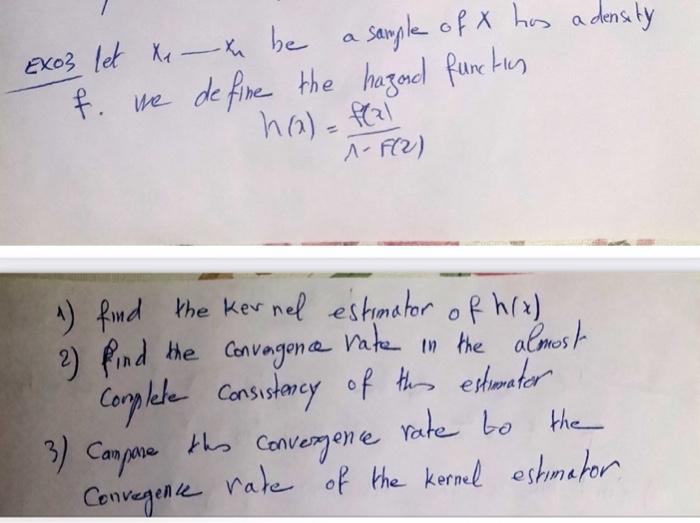 EXO3 let X1 — Xn be a sample of X has a density
f. we define the hazard function
h(x) = f(x)
1 - F(x)
1) find the kernel estimator of h(x)
2) find the Convergence rate in the almost
Complete Consistency of this estimator
3) Compare this convergence rate to the
Convegence rate of the kernel estimator.